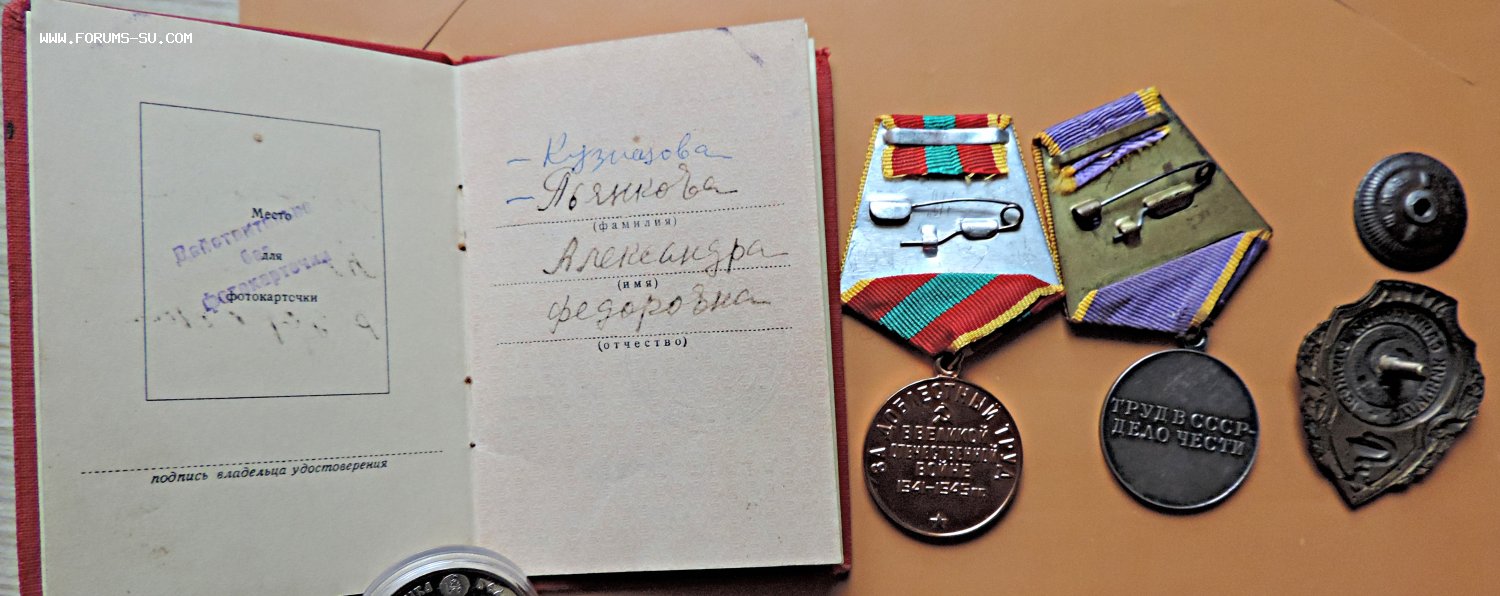 WWW.FORUMS-SU.COM
Место
для
фотокарточки
Действительно
без
фотокарточки
подпись владельца удостоверения
– Кузнецова
– Пьянкова
(фамилия)
Александра
(имя)
Федоровна
(отчество)
ЗА ДОБЛЕСТНЫЙ ТРУД
В ВЕЛИКОЙ
ОТЕЧЕСТВЕННОЙ
ВОЙНЕ
1941–1945 гг
ТРУД В СССР–
ДЕЛО ЧЕСТИ